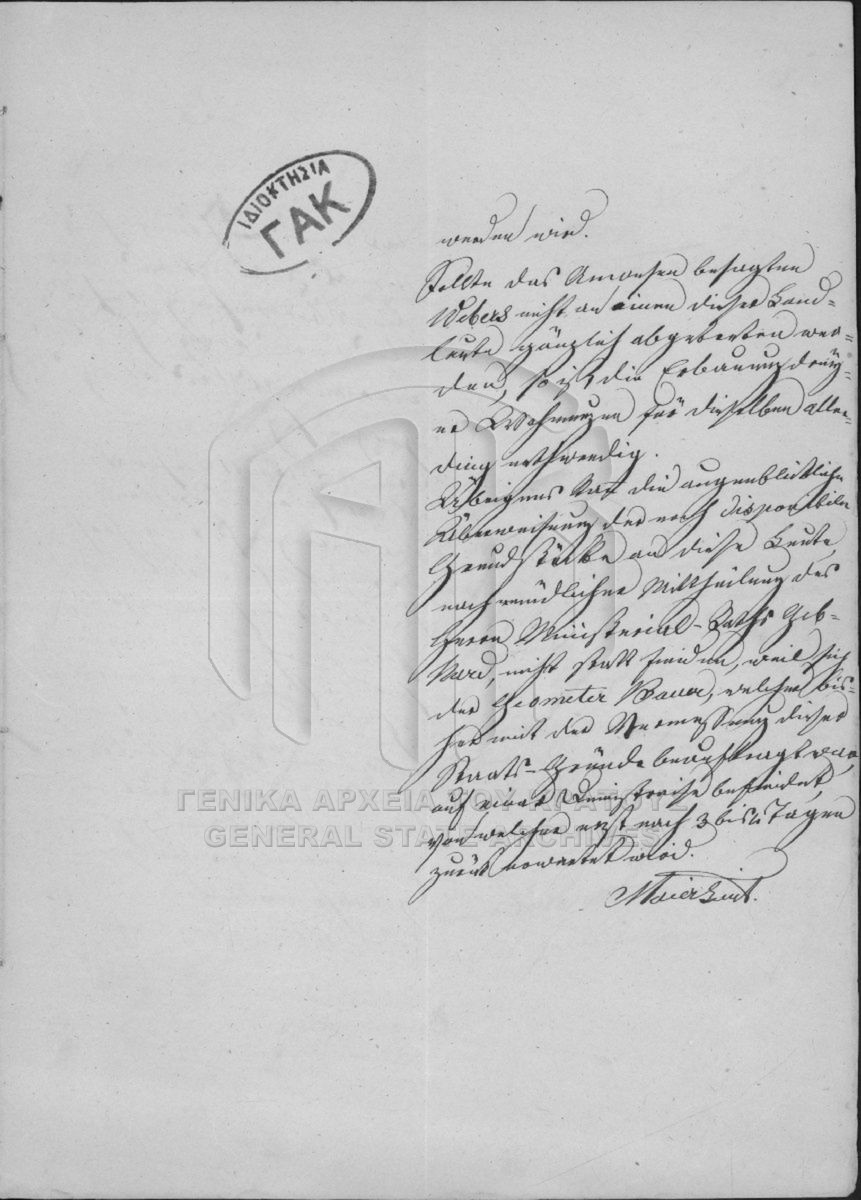 ΙΔΙΟΚΤΗΣΙΑ
ΓΑΚ
werden wird.
Sollte das Anwesen besagten
Webers nicht an einen dieser Land-
leute gänzlich abgetreten wer-
den, so ist die Erbauung
Wohnungen für dieselben aller-
ding nothwendig.
Übrigens kann die augenblickliche
Überweisung der noch disponiblen
Grundstücke an diese Leute,
nach mündlicher Mittheilung des
Herrn Ministerial-Raths Geb-
hard, nicht statt finden, weil sich
der Geometer Bauer, welcher bis-
her mit der Vermessung dieser
Staats-Gründe beauftragt war,
auf einer Dienstreise befindet,
von welcher erst nach 3 bis 4 Tagen
zurück erwartet wird.
ΓΕΝΙΚΑ ΑΡΧΕΙΑ ΤΟΥ ΚΡΑΤΟΥΣ
GENERAL STATE ARCHIVES